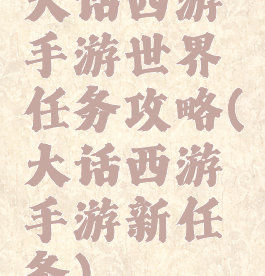 大话西游
手游世界
任务攻略(
大话西游
手游新任
务)